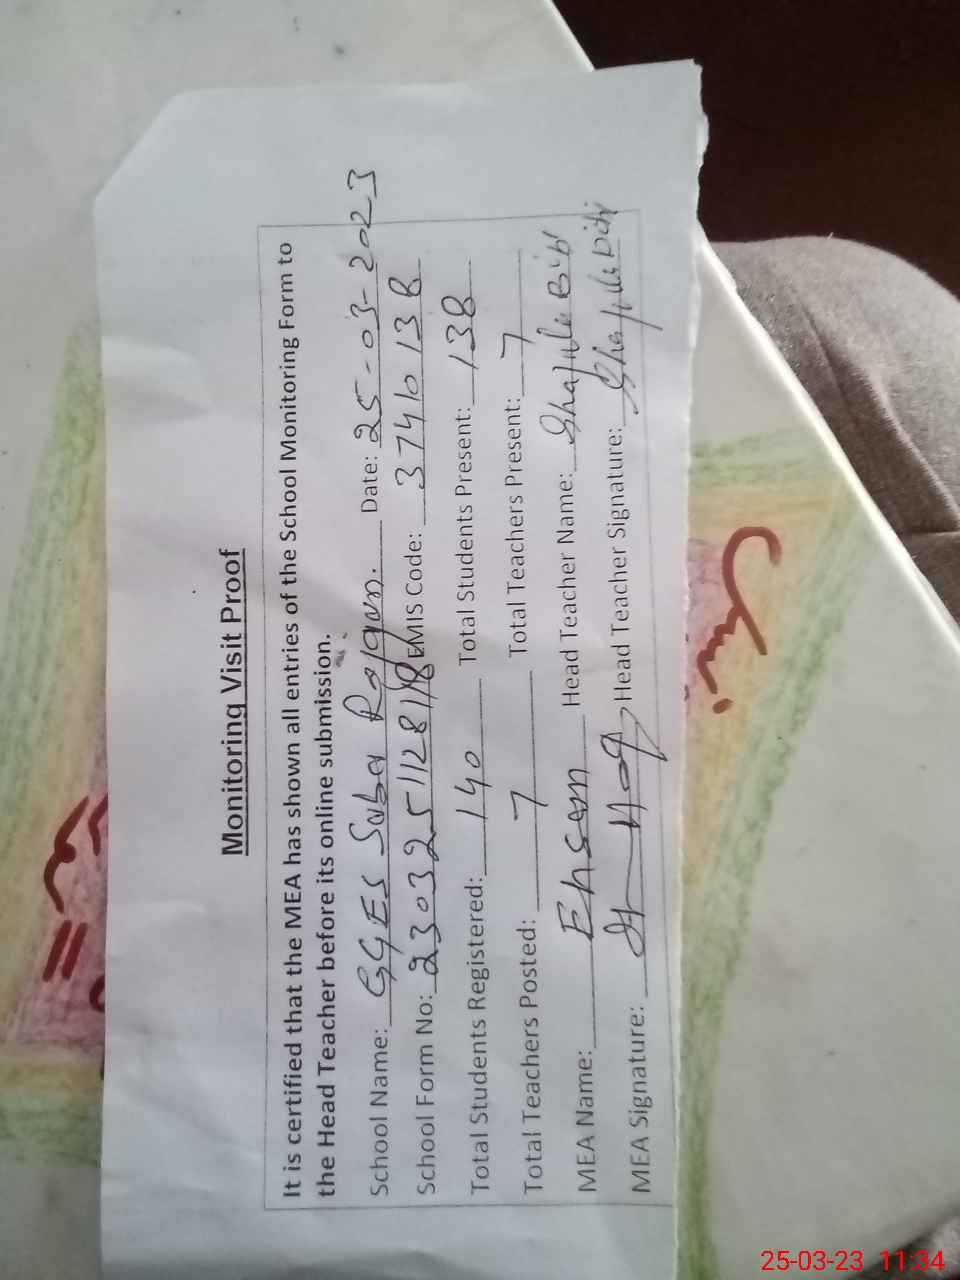 Monitoring Visit Proof
It is certified that the MEA has shown all entries of the School Monitoring Form to
the Head Teacher before its online submission.
School Name: GGES Suba Rajgan. Date: 25-03-2023
School Form No: 23032511281 EMIS Code: 37410138
Total Students Registered: 140 Total Students Present: 138
Total Teachers Posted: 7 Total Teachers Present: 7
MEA Name: Ehsan Head Teacher Name: Bibi
MEA Signature: Head Teacher Signature: Bibi
25-03-23 11:34